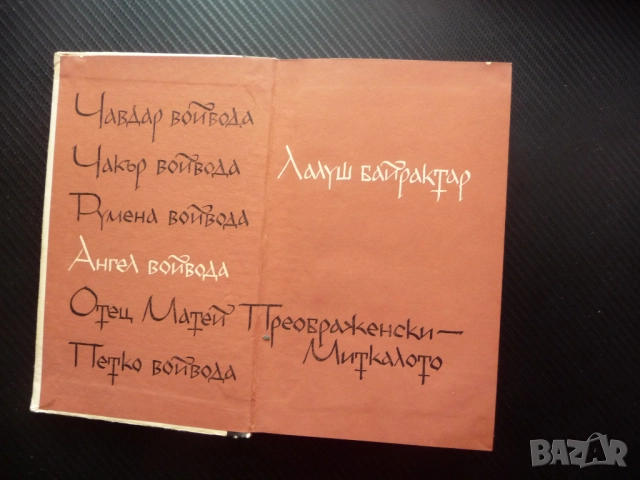 Чавдар войвода
Чакър войвода
Румена войвода
Ангел войвода
Отец Матей Преображенски—
Миткалото
Петко войвода
Лалуш байрактар
BAZAR